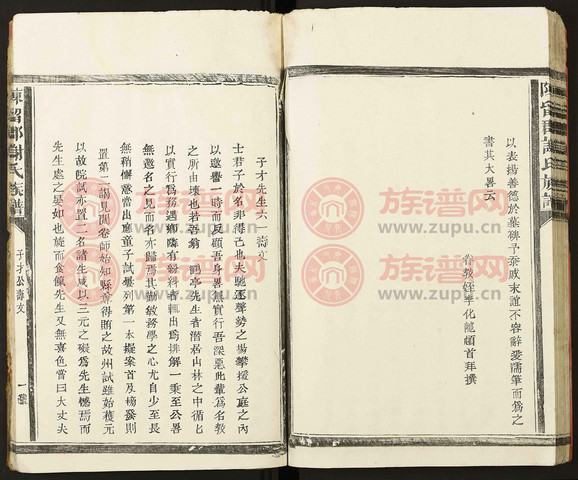 以表揚善德於墓碑予忝戚末誼不容辭爰濡筆而為之
書其大畧云
眷教姪李化龍頓首拜撰
陳留郡謝氏族譜
子才先生六一壽文
士君子於名非得已也夫馳逐聲勢之場攀援公庭之內
以邀譽一時而反顧吾身畧無實行吾深惡此輩為名教
之所由壞也若吾翁鶴亭先生者潛居山林之中循匕
以實行為務遇鄉隣有紛料者輒出為排解一乘至公畧
無邀名之見而名亦歸焉其勤敏務學之心尤自少至長
無稍懈憲當出應童子試屢列第一本擬案首及榜發則
置第二謁見閱卷師始知縣尊得賄之故州試雖始獲元
以故院試亦置二名諸生咸以三元之礙為先生憾焉而
先生處之晏如也旋而食餼先生又無喜色嘗曰大丈夫
陳留郡謝氏族譜
子才公壽文
一
族谱网
www.zupu.cn
族谱网
www.zupu.cn
族谱网
www.zupu.cn
族谱网
www.zupu.cn